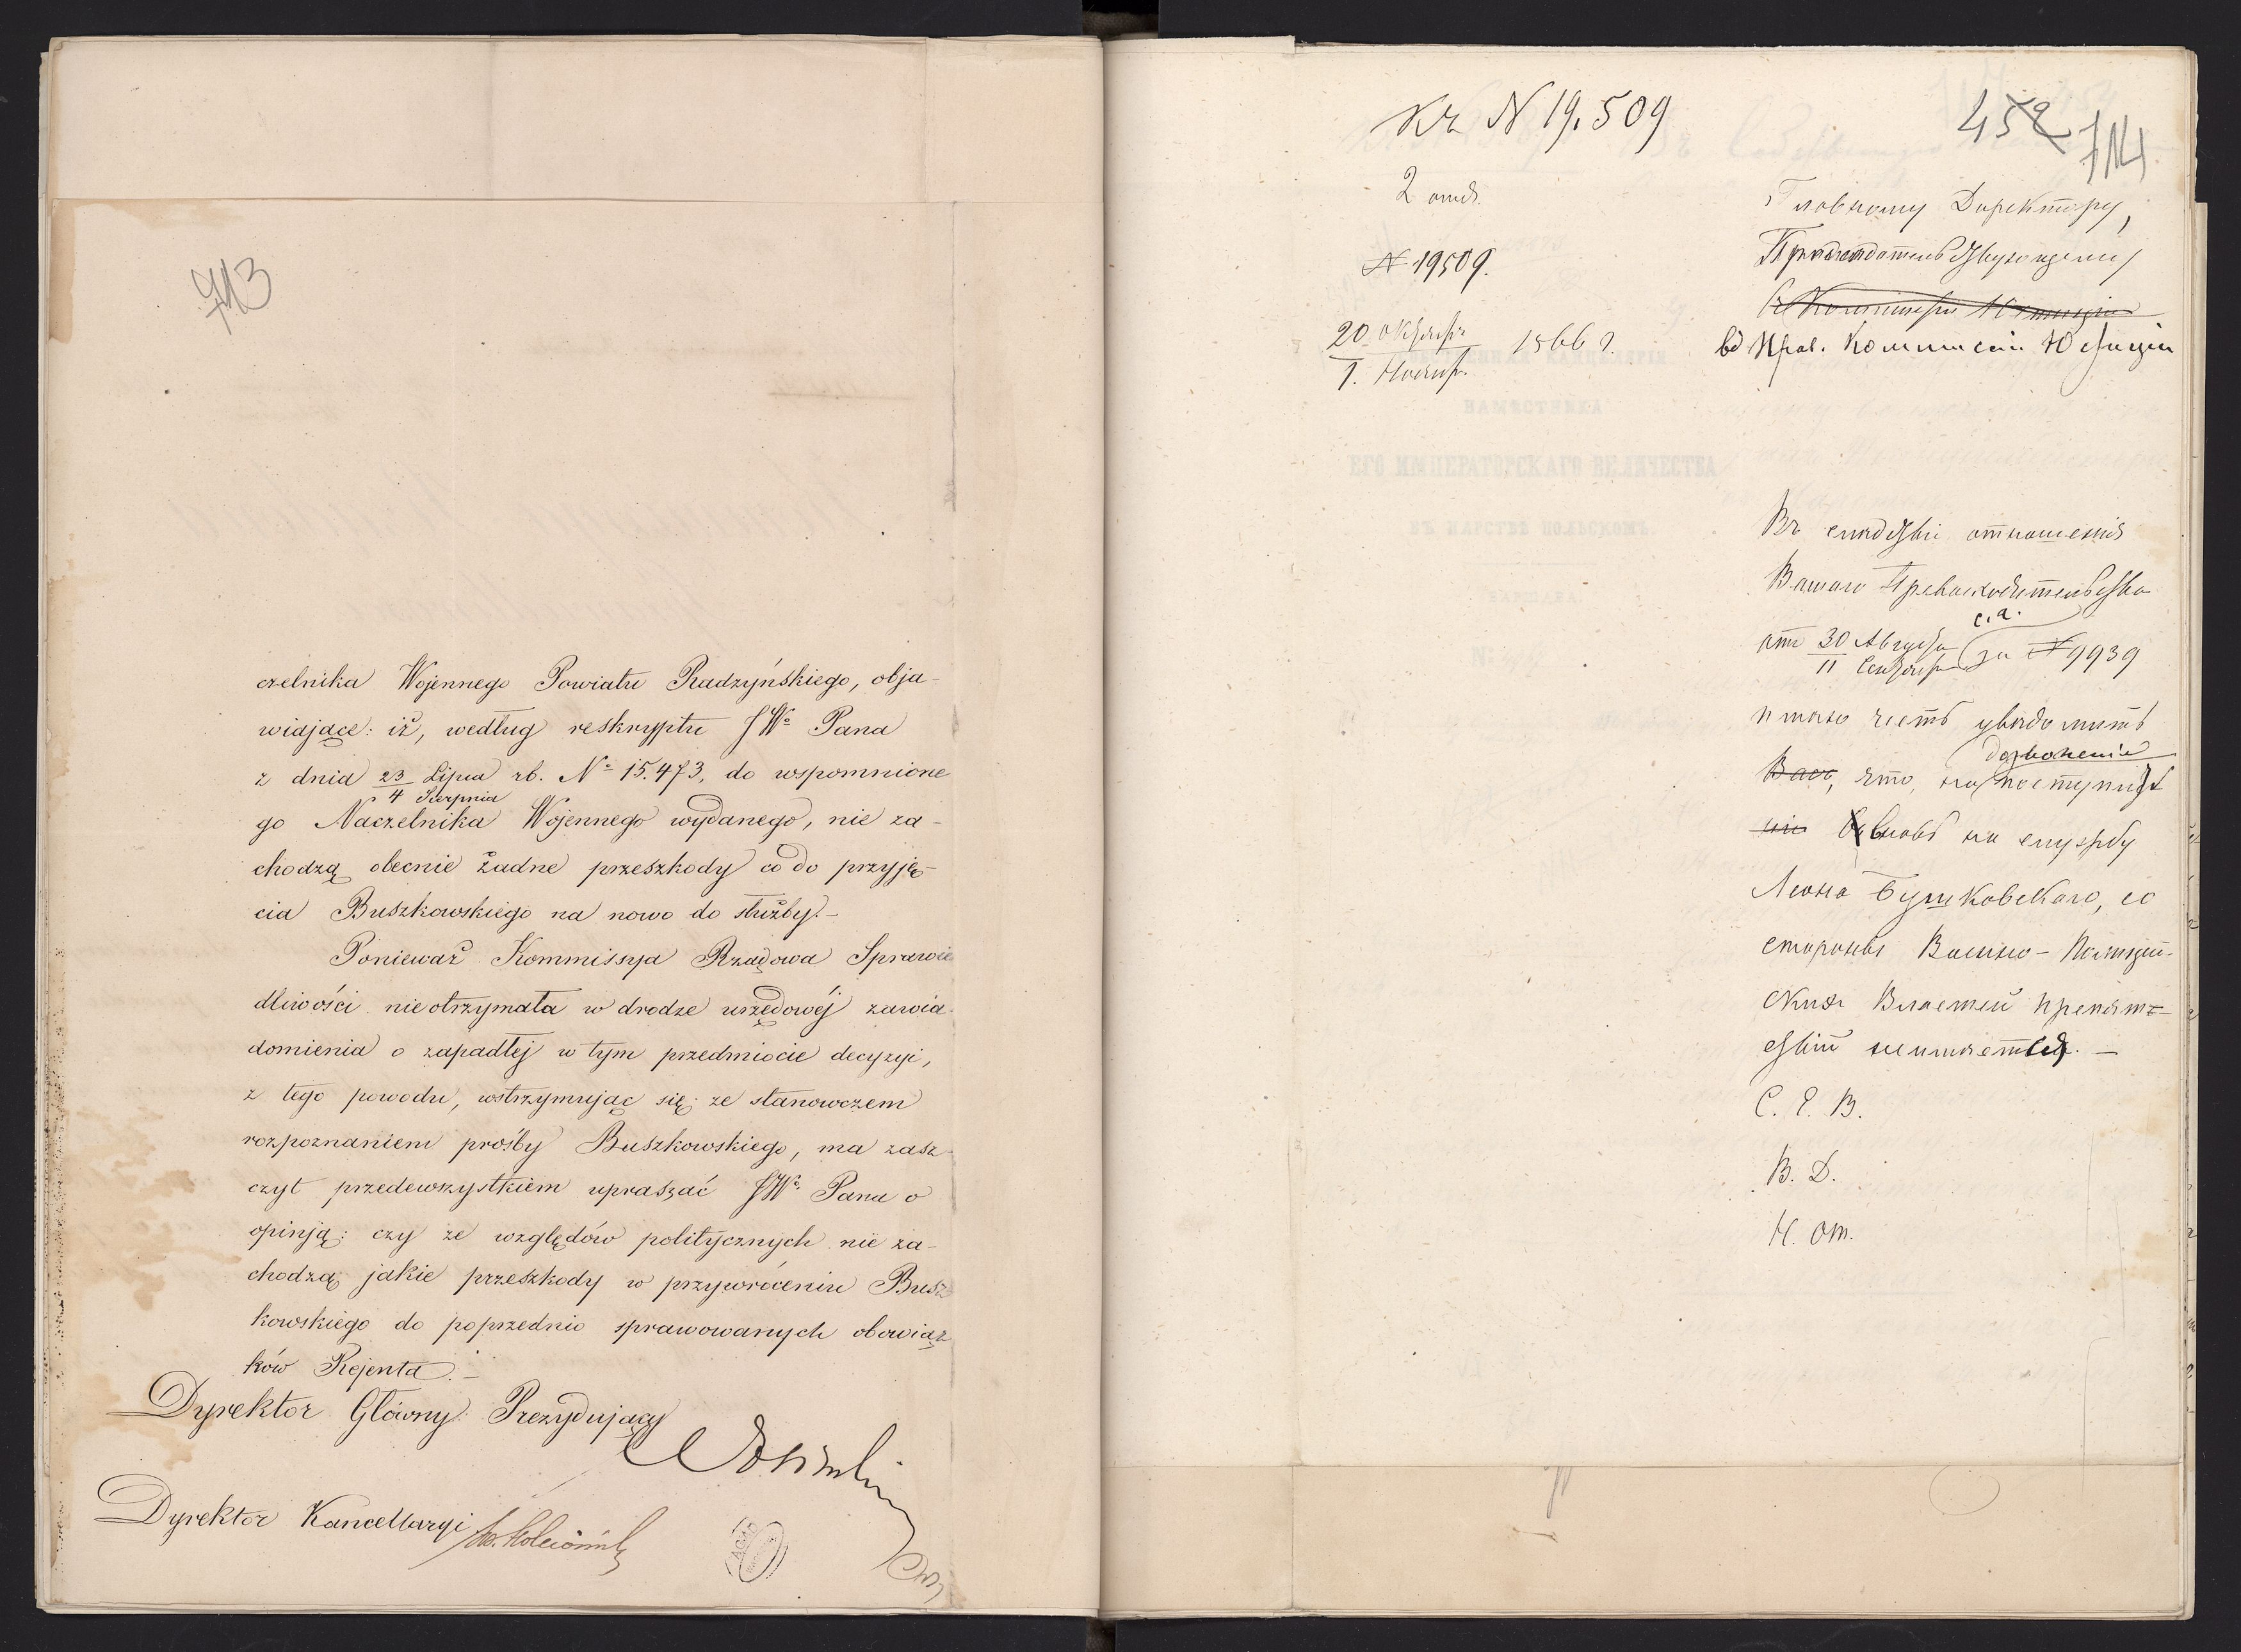 713
czelnika Wojennego Powiatu Radzyńskiego, obja-
wiające: iż, według reskryptu JWo Pana
z dnia 23/4 Lipca/Sierpnia rb. No 15.473, do wspomnione
go Naczelnika Wojennego wydanego, nie za-
chodzą obecnie żadne przeszkody co do przyję-
cia Buszkowskiego na nowo do służby.-
Ponieważ Kommissya Rządowa Sprawie
dliwości nie otrzymała w drodze urzędowéj zawia-
domienia o zapadłéj w tym przedmiocie decyzyi,
z tego powodu, wstrzymując się ze stanowczem
rozpoznaniem prośby Buszkowskiego, ma zasz-
czyt przedewszystkiem upraszać JWo Pana o
opinją: czy ze względów politycznych nie za-
chodzą jakie przeszkody w przywróceniu Busz
kowskiego do poprzednio sprawowanych obowiąz
ków Rejenta.-
Dyrektor Główny Prezydujący
Dyrektor Kancellaryi
AGAD
Къ N 19.509
452 714
2 отд.
N 19509.
20 Октября
1. Ноября 1866 г.
Главному Директору,
Предсѣдательствующему
въ Комиссіи Юстиціи
въ Прав. Коммисіи Юстиціи
НАМѢСТНИКА
ЕГО ИМПЕРАТОРСКАГО ВЕЛИЧЕСТВА
ВЪ ЦАРСТВѢ ПОЛЬСКОМЪ.
ВАРШАВА
Въ слѣдствіе отношенія
Вашего Превосходительства
отъ 30 Августа/11 Сентября с.г. за N 9939
имѣю честь увѣдомить
Васъ, что, на дозволеніе поступить
вновь на службу
Леона Бушковскаго, со
стороны Военно-Полицей-
скихъ Властей препят-
ствій не имѣется.-
С. Е. В.
В. Д.
Н. От.